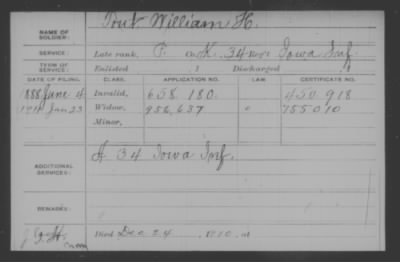 NAME OF SOLDIER: Trout William H.
SERVICE: Late rank, P. Co. K. 34 Reg't Iowa Inf
TERM OF SERVICE: Enlisted , 1 Discharged , 1
DATE OF FILING. CLASS. APPLICATION NO. LAW. CERTIFICATE NO.
1888 June 4. Invalid, 658.180. 450.918
Jan 23 Widow, 956,637 755010
Minor,
ADDITIONAL SERVICES: A 34 Iowa Inf.
REMARKS:
Died Dec 24, 1910, at